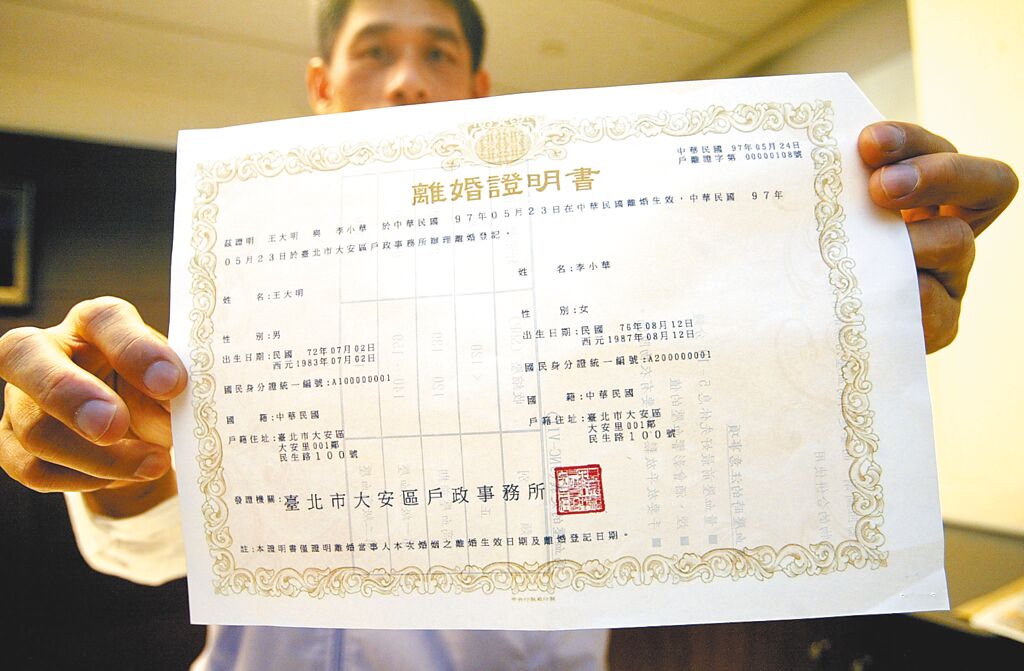 中華民國 97年05月24日
戶離證字第 00000108號
離婚證明書
茲證明 王大明 與 李小華 於中華民國 97年05月23日在中華民國離婚生效，中華民國 97年
05月23日於臺北市大安區戶政事務所辦理離婚登記。
姓 名：王大明
性 別：男
出生日期：民國 72年07月02日
西元1983年07月02日
國民身分證統一編號：A100000001
國 籍：中華民國
戶籍住址：臺北市大安區
大安里001鄰
民生路100號
姓 名：李小華
性 別：女
出生日期：民國 76年08月12日
西元1987年08月12日
國民身分證統一編號：A200000001
國 籍：中華民國
戶籍住址：臺北市大安區
大安里001鄰
民生路100號
發證機關：臺北市大安區戶政事務所
註：本證明書僅證明離婚當事人本次婚姻之離婚生效日期及離婚登記日期。